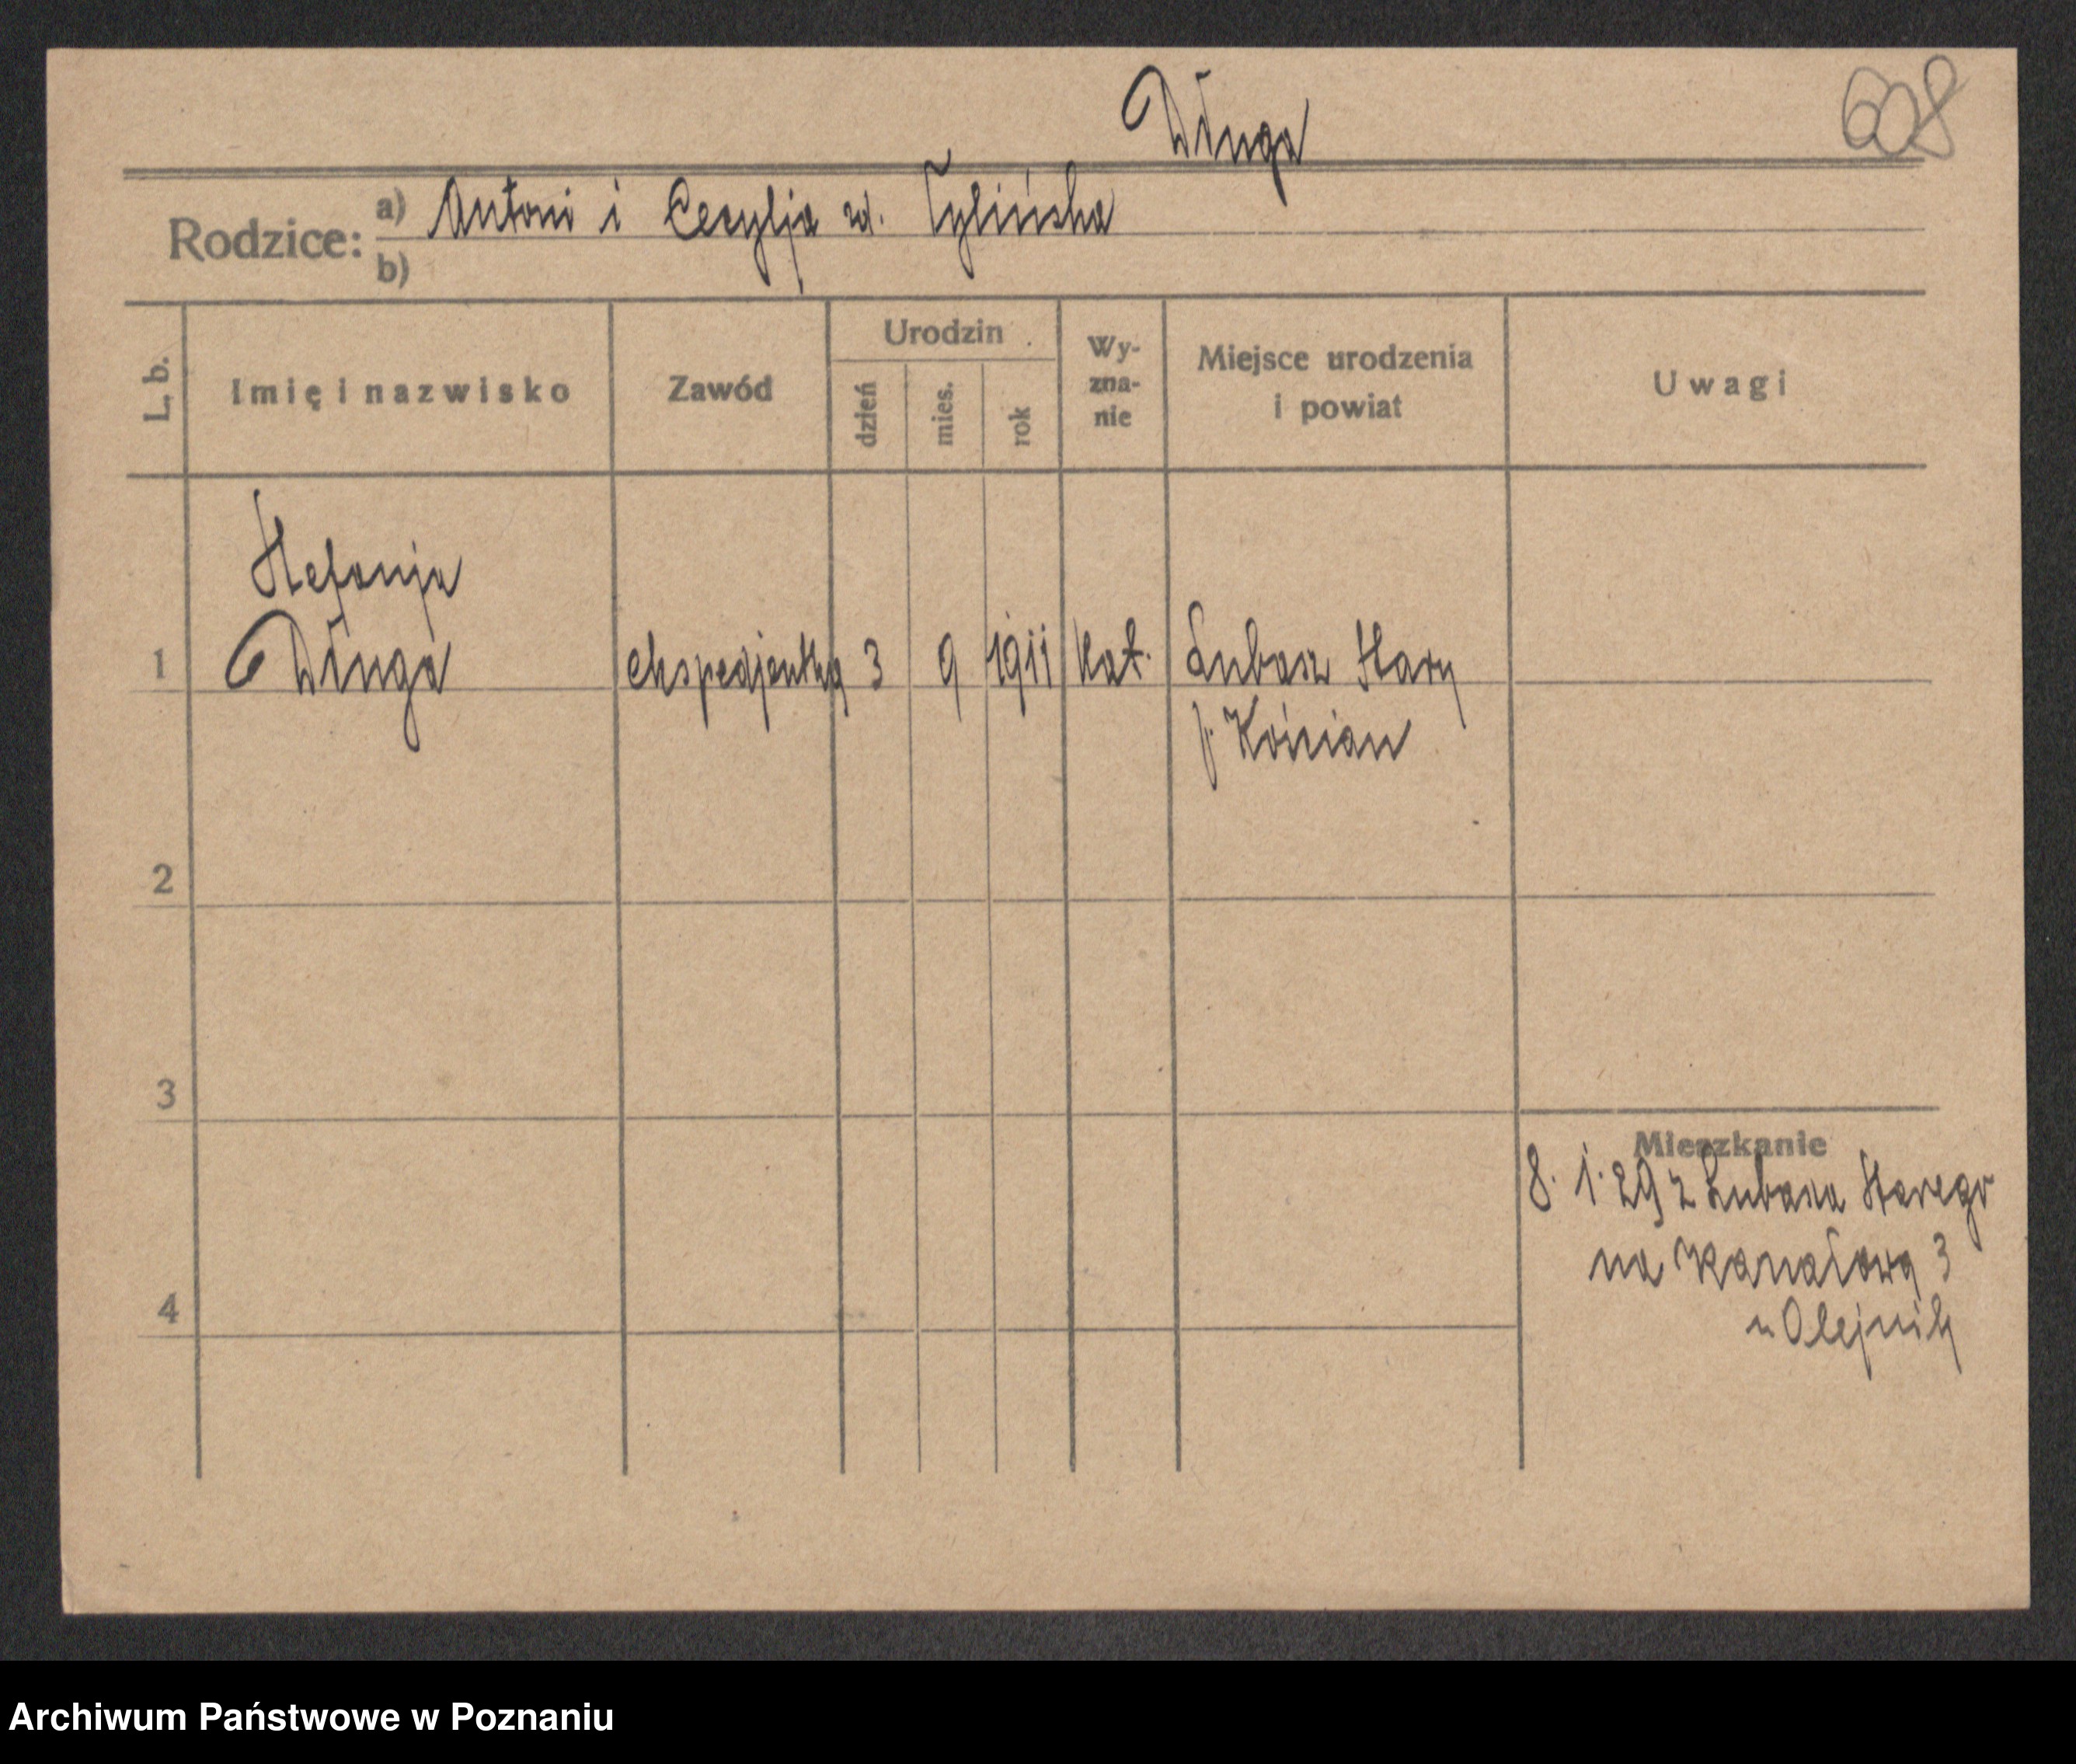 Długa
608
Rodzice: a) Antoni i Cecylja zd. Tylińska
b)
L. b.
Imię i nazwisko
Zawód
Urodzin
dzień
mies.
rok
Wy-
zna-
nie
Miejsce urodzenia
i powiat
Uwagi
Stefanja
1 Długa ekspedjentka 3 9 1911 kat. Lubosz Stary
p. Kościan
2
3
Mieszkanie
8. 1. 29 z Lubosza Starego
na Kanałową 3
4
u Olejnik
Archiwum Państwowe w Poznaniu